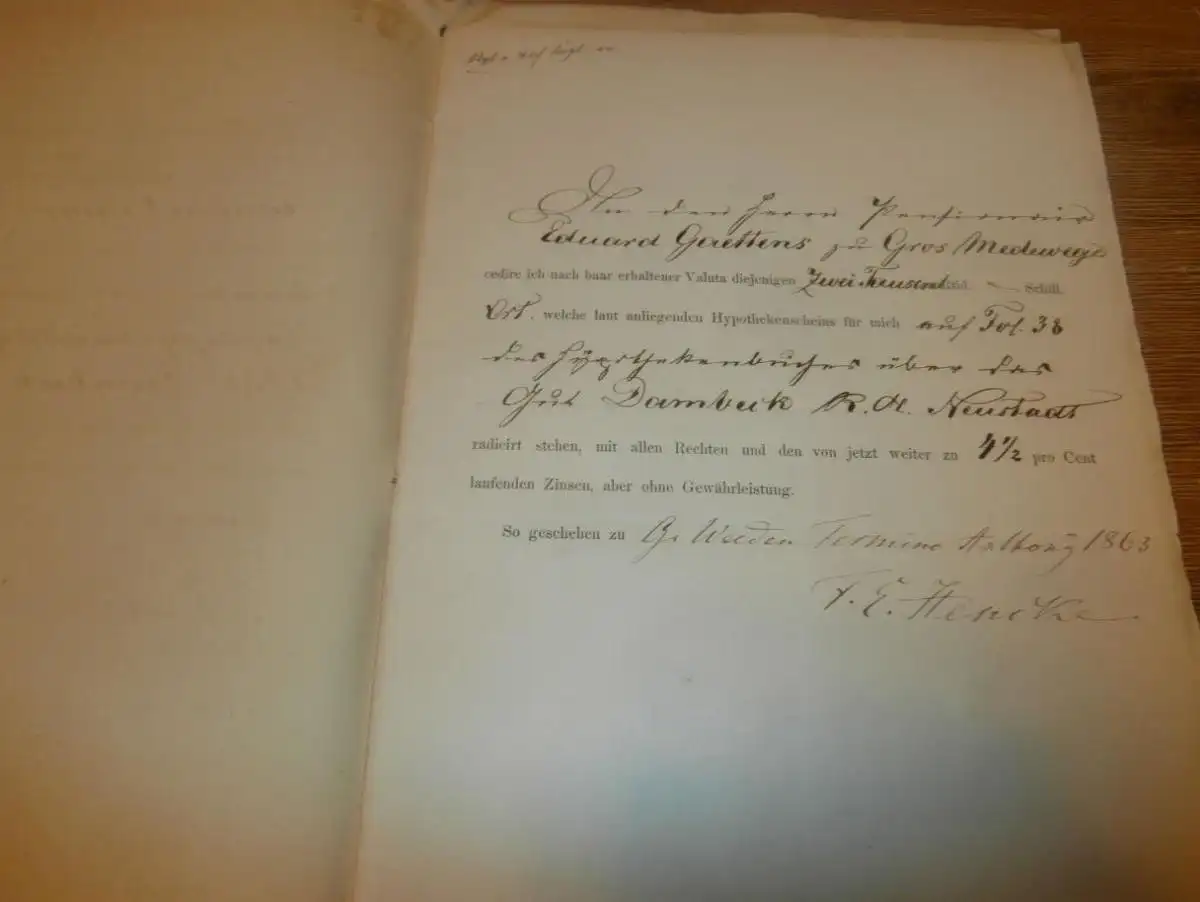 An den Herrn Pensionair
Eduard Gaettens zu Gros Medewege
cedire ich nach baar erhaltener Valuta diejenigen Zwei Tausend Schill.
Crt. welche laut anliegenden Hypothekenscheins für mich auf Fol. 38
des Hypothekenbuches über das
Gut Dambeck R. A. Neustadt
radicirt stehen, mit allen Rechten und den von jetzt weiter zu 4 1/2 pro Cent
laufenden Zinsen, aber ohne Gewährleistung.
So geschehen zu Gr Weeden Termino Antony 1863
F. E. Hencke